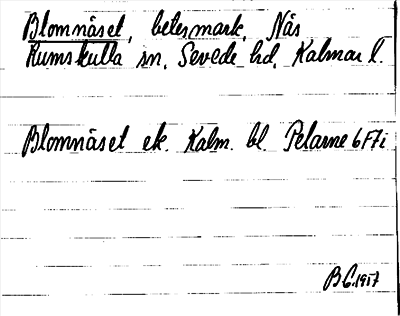 Blomnäset, betesmark, Näs
Rumskulla sn, Sevede hd, Kalmar l.
Blomnäset ek. Kalm. bl. Pelarne 6F7i
B G 1957